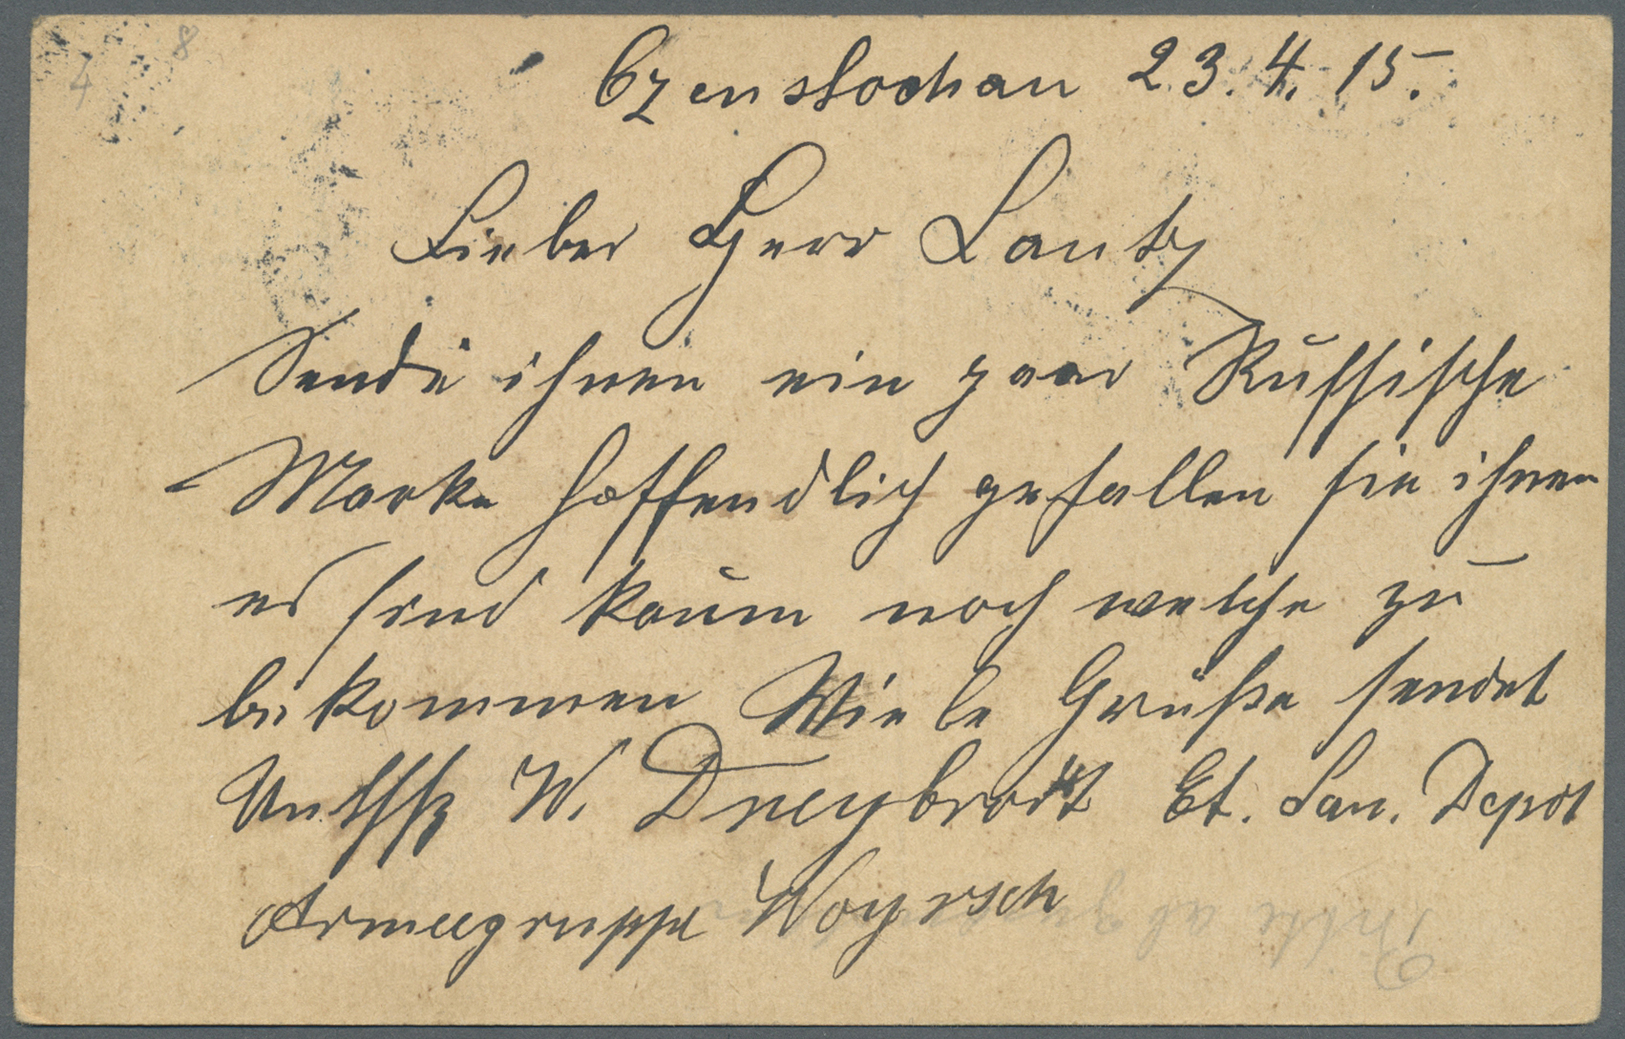 Czenstochau 23.4.15.
Lieber Herr Lantz
Sende ihnen ein paar Russische
Marke hoffendlich gefallen sie ihnen
es sind kaum noch welche zu
bekommen Viele Grüße sendet
W. Dreybrodt Et. San. Depot
Armeegruppe Woyrsch